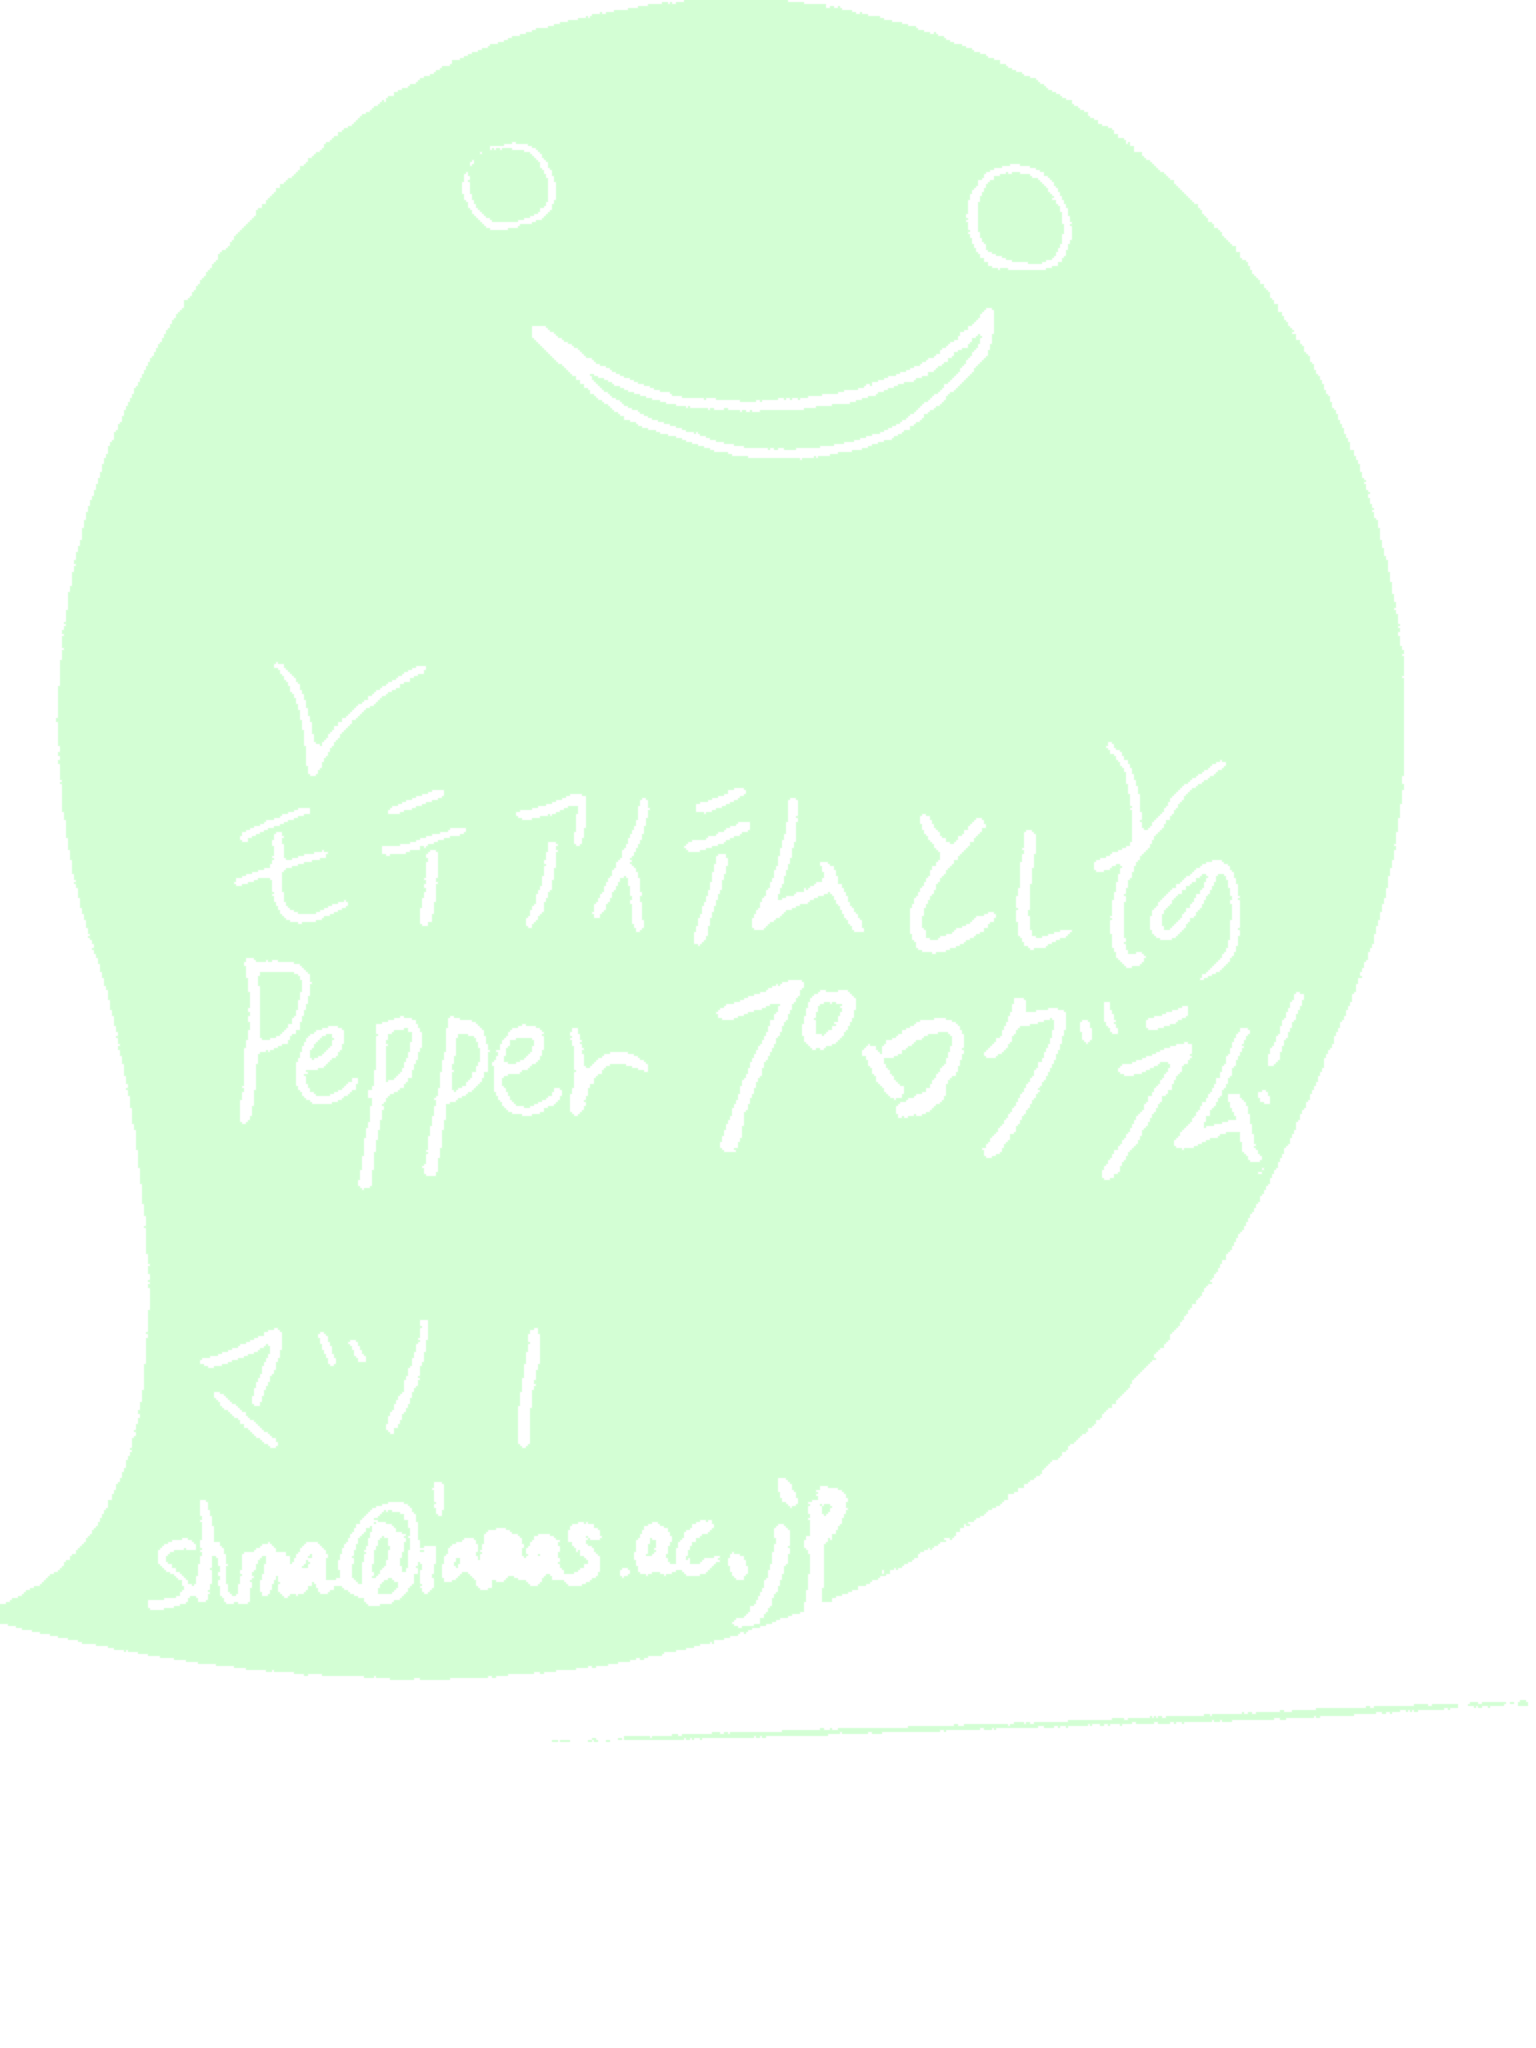 モテアイテムとしての
Pepper プログラム!
マソー
shma@iamas.ac.jp